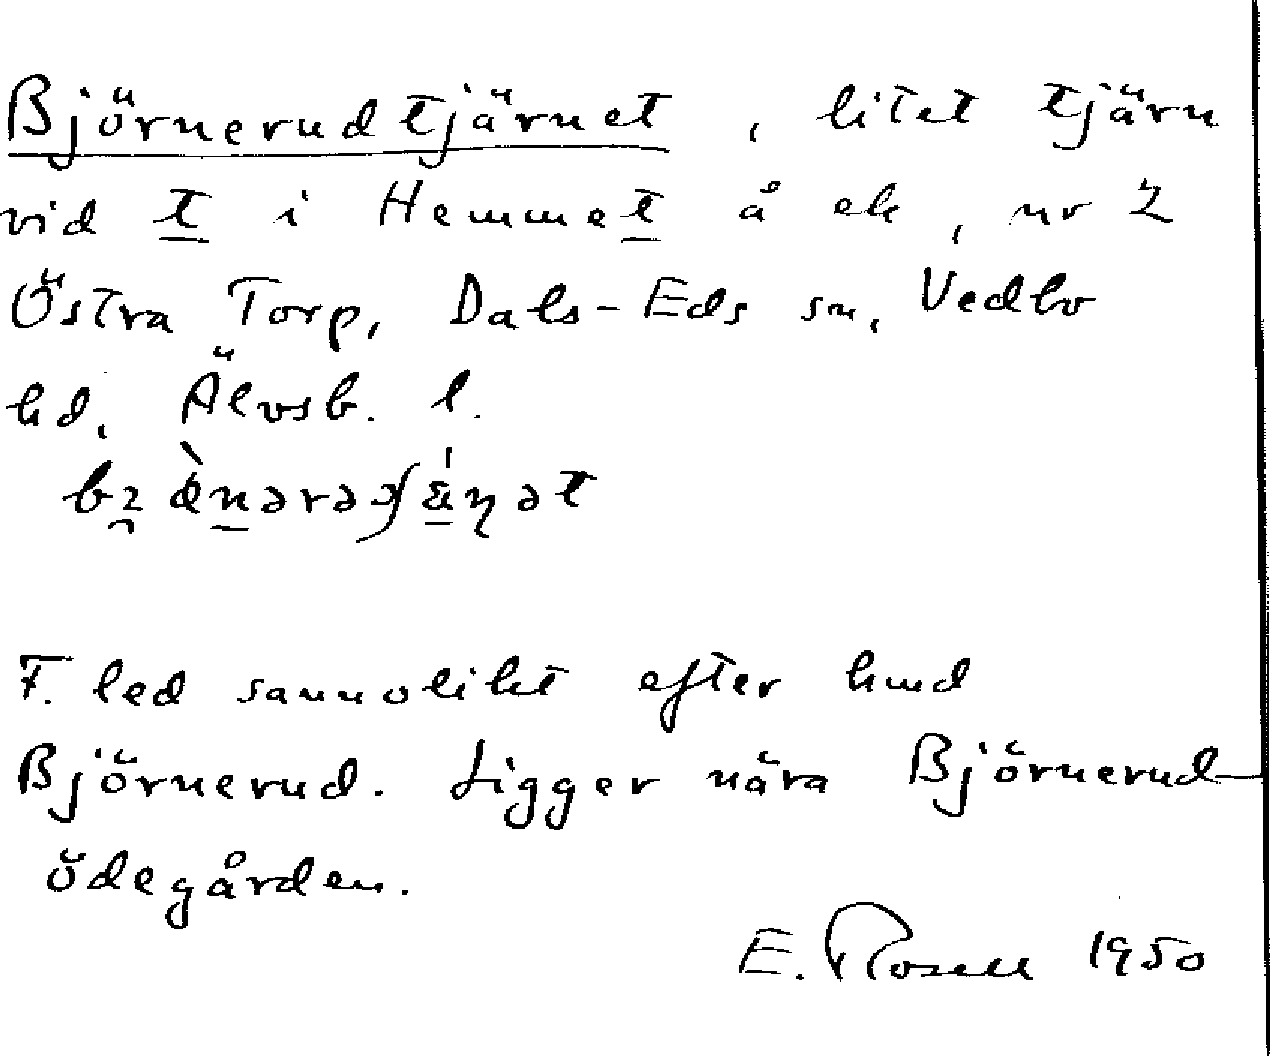 Björnerudtjärnet, litet tjärn
vid t i Hemmet å ek, nr 2
Östra Torp, Dals-Eds sn, Vedbo
hd, Älvsb. l.
F. led sannolikt efter hmd
Björnerud. Ligger nära Björnerud-
ödegården.
E. Rosell 1950